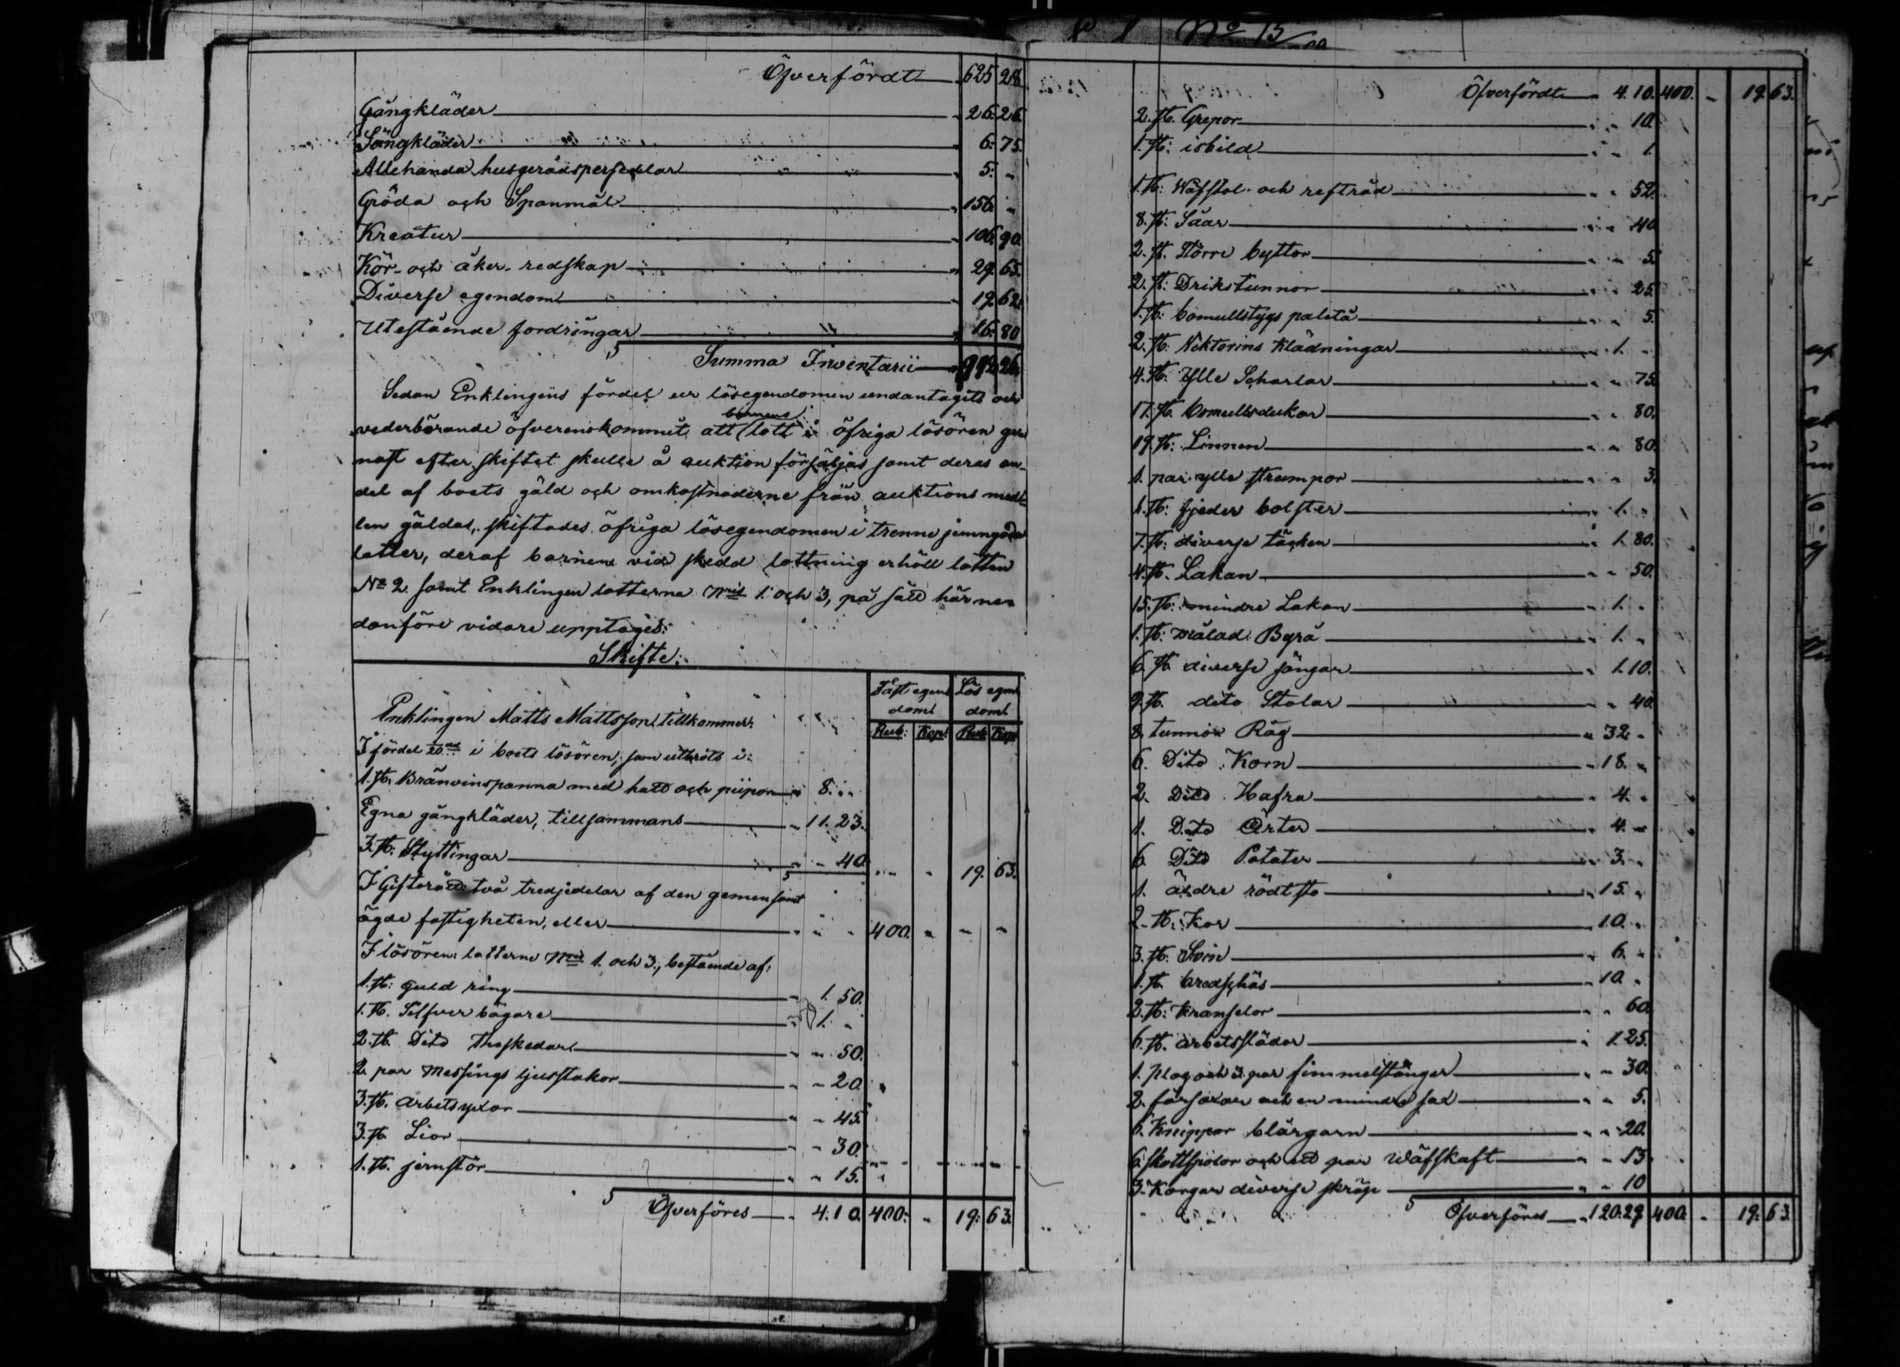 Öfverfördt 625 28.
Gångkläder 26. 26.
Sängkläder 6. 75.
Allehanda husgerådspersedlar 5. "
Gröda och Spanmål 156. "
Kreatur 106. 90.
Kör- och åker-redskap 29. 65.
Diverse egendom 19. 62.
Utestående fordringar 16. 80
Summa Inventarii 992. 26.
Sedan Enklingens fördel ur lösegendomen undantagits och
vederbörande öfverenskommit att barnens lott i öfriga lösören ge-
nast efter skiftet skulle å auktion försäljas samt deras an-
del af boets gäld och omkostnaderne från auktions med-
len gäldas, skiftades öfriga lösegendomen i trenne jemngoda
lotter, deraf barnen vid skedd lottning erhöll lotten
No 2 samt Enklingen lotterna Nris 1 och 3, på sätt här ne-
danföre vidare upptages:
Skifte:
Fast egen dom Lös egen dom
Enklingen Matts Mattsson tillkommer: Rub. Kop. Rub. Kop.
I fördel 20de i boets lösören, som utbröts i:
1. st. Bränvinspanna med hatt och piipor " 8. "
Egna gångkläder, tillsammans " 11. 23.
3. st. Styttingar " " 40. " " 19. 63.
I Giftorätt två tredjedelar af den gemensamt
ägde fastigheten, eller " " " 400. " " "
I lösören: lotterne Nris 1 och 3, bestående af:
1. st. guld ring " 1. 50.
1. st. Silfver bägare " 1. "
2. st. Dito Theskedar " " 50.
2. par Messings ljusstakar " " 20.
3. st. arbetsyxor " " 45.
3. st. Lior " " 30.
1. st. jernstör " " 15.
Öfverföres " 4. 10. 400. " 19. 63.
No 15
Öfverfördt 4. 10. 400. " 19. 63.
2. st. Grepor " " 10.
1. st. isbild " " 1.
1. st. Wäfstol och refträd " " 52.
8. st. Såar " " 40.
2. st. större byttor " " 5.
2. st. Drikstunnor " " 25.
1. st. bomullstygs paletå " " 5.
2. st. Viktorins Klädningar " 1. "
4. st. Ylle Scharlar " " 75.
17. st. bomullsdukar " " 80.
19. st. Linnen " " 80.
1. par ylle strumpor " " 3.
1. st. fjeder bolster " 1. "
7. st. diverse täcken " 1. 80.
4. st. Lakan " " 50.
15. st. mindre Lakan " 1. "
1. st. målad Byrå " 1. "
6. st. diverse sängar " 1. 10.
9. st. dito Stolar " " 40.
8. tunnor Råg " 32. "
6. Dito Korn " 18. "
2. Dito Hafra " 4. "
1. Dito Ärter " 4. "
6. Dito Potater " 3. "
1. äldre rödt sto " 15. "
2. st. Kor " 10. "
3. st. Svin " 6. "
1. st. bredschäs " 10. "
2. st. Kramselor " " 60.
6. st. arbetsslädor " 1. 25.
1. Plog och 3. par fimmelstänger " " 30.
2. fårsaxar och en mindre sax " " 5.
6. Knippor blårgarn " " 20.
6. skottspolor och ett par wäfskaft " " 13.
3. Korgar diverse skräp " " 10
Öfverföres " 120. 29. 400. " 19. 63.